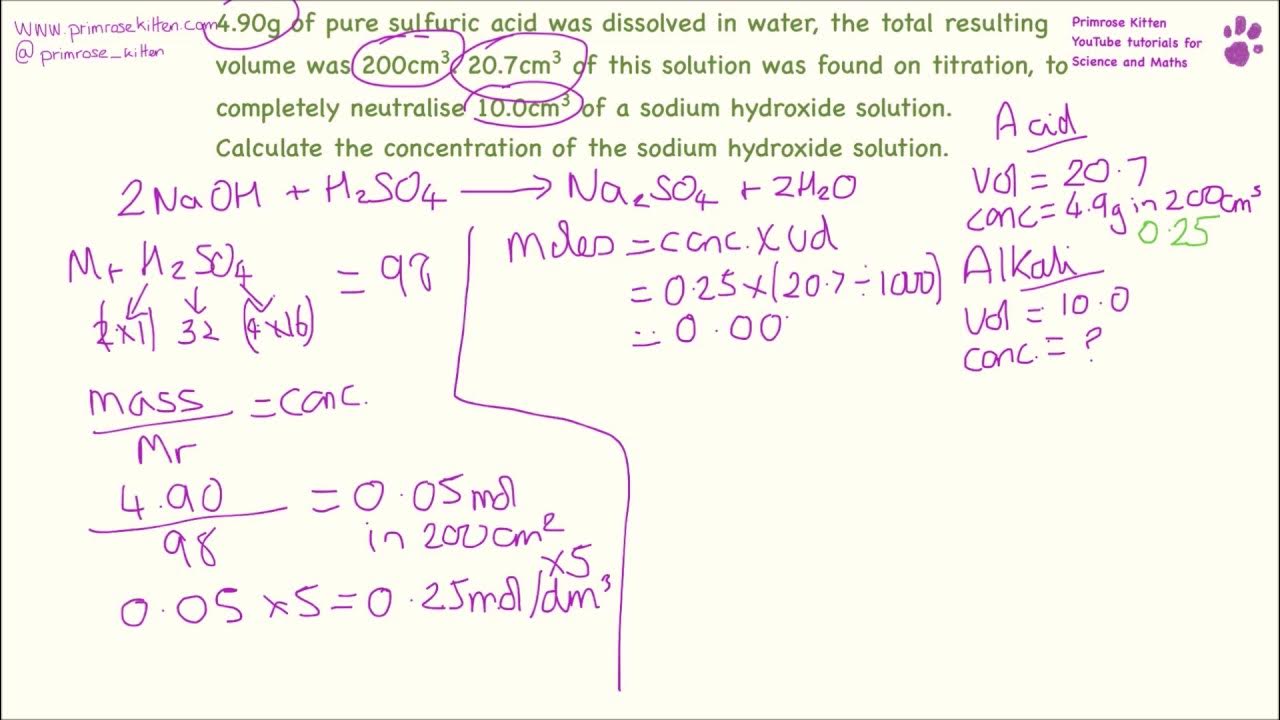 www.primrosekitten.com
@primrose_kitten
4.90g of pure sulfuric acid was dissolved in water, the total resulting
volume was 200cm³. 20.7cm³ of this solution was found on titration, to
completely neutralise 10.0cm³ of a sodium hydroxide solution.
Calculate the concentration of the sodium hydroxide solution.
Primrose Kitten
YouTube tutorials for
Science and Maths
2NaOH + H₂SO₄ ⟶ Na₂SO₄ + 2H₂O
Mr H₂SO₄ = 98
(2×1) 32 (4×16)
mass = conc.
Mr
4.90 = 0.05mol
98
in 200cm²
×5
0.05 ×5 = 0.25mol/dm³
moles = conc. × vol
= 0.25 × (20.7 ÷ 1000)
= 0.00
Acid
vol = 20.7
conc = 4.9g in 200cm³
0.25
Alkali
vol = 10.0
conc. = ?